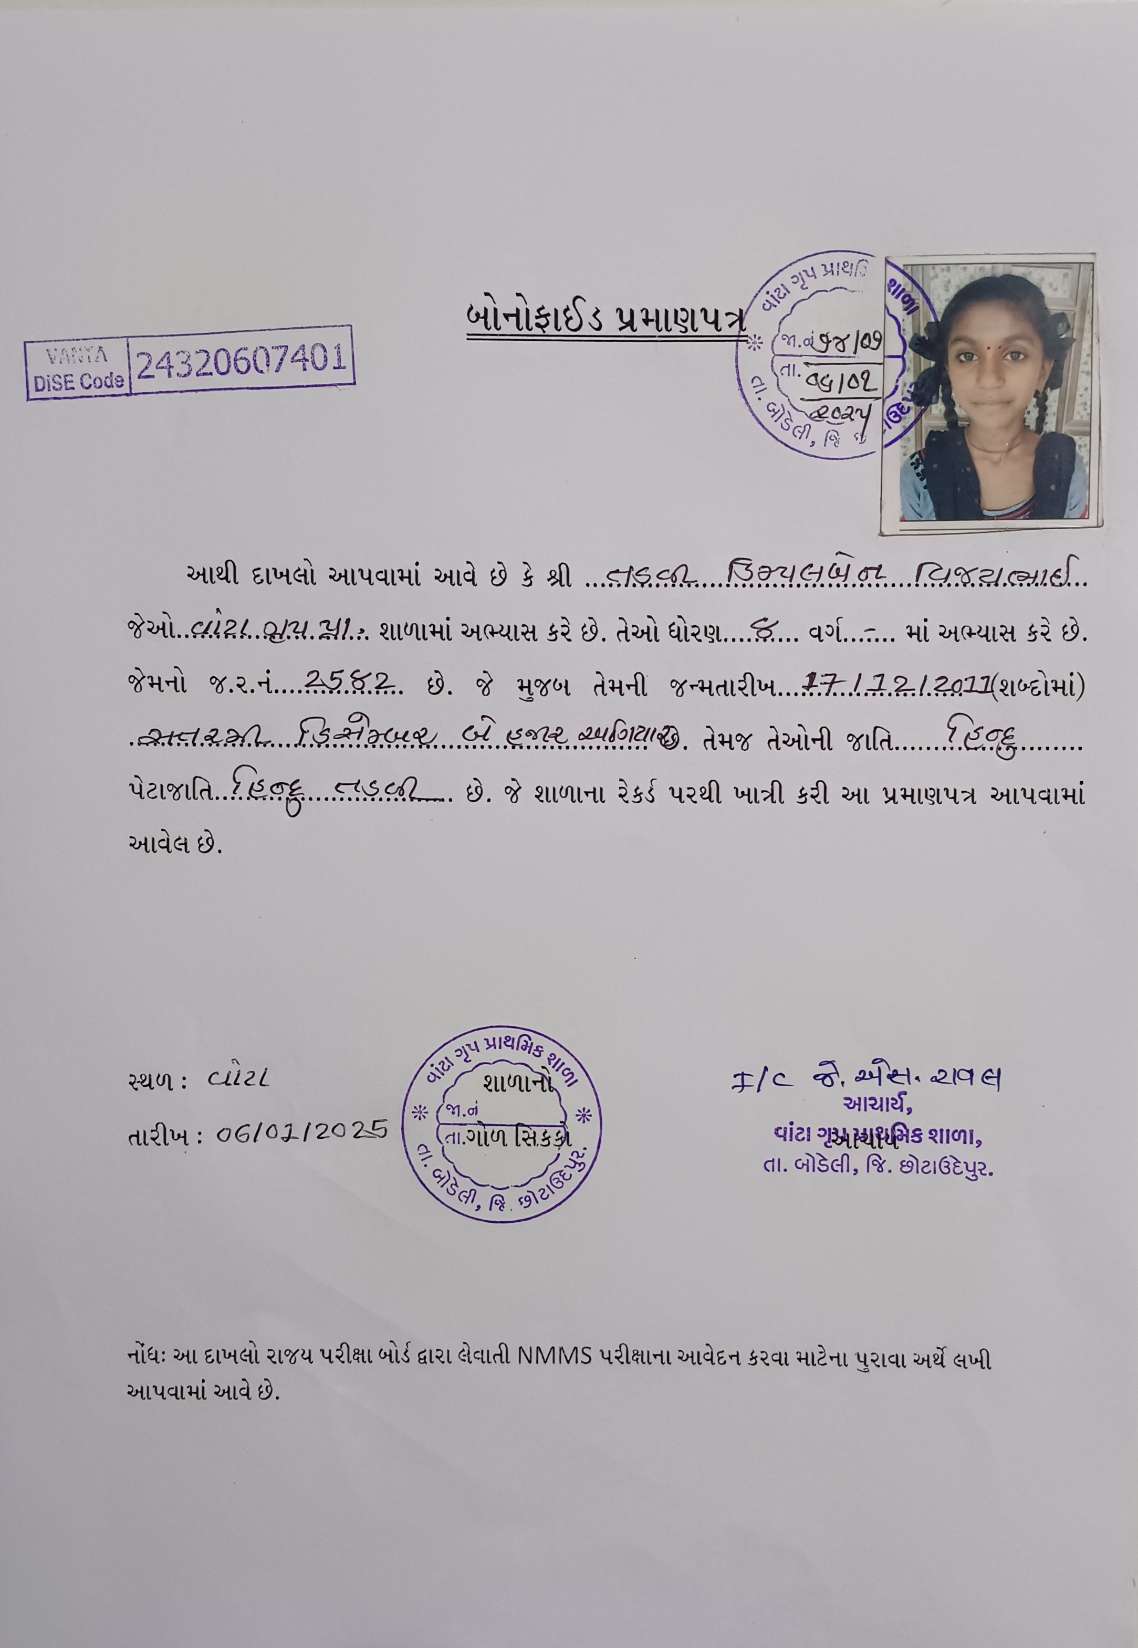 બોનોફાઈડ પ્રમાણપત્ર
વાંટા ગૃપ પ્રાથમિ શાળા
જા.નં ૭૪/૦૧
તા. ૦૬/૦૧
૨૦૨૫
તા. બોડેલી, જિ છ ઉદેપુર
VANTA DiSE Code 24320607401
આથી દાખલો આપવામાં આવે છે કે શ્રી તડવી ડિમ્પલબેન વિજયભાઈ
જેઓ વાંટા ગૃપ પ્રા. શાળામાં અભ્યાસ કરે છે. તેઓ ધોરણ 8 વર્ગ - માં અભ્યાસ કરે છે.
જેમનો જ.ર.નં. 2582 છે. જે મુજબ તેમની જન્મતારીખ 17/12/2011 (શબ્દોમાં)
સત્તરમી ડિસેમ્બર બે હજાર અગિયાર છે. તેમજ તેઓની જાતિ હિન્દુ
પેટાજાતિ હિન્દુ તડવી છે. જે શાળાના રેકર્ડ પરથી ખાત્રી કરી આ પ્રમાણપત્ર આપવામાં
આવેલ છે.
સ્થળ : વાંટા
તારીખ : 06/01/2025
વાંટા ગૃપ પ્રાથમિક શાળા
શાળાનો
જા.નં
તા. ગોળ સિક્કો
તા. બોડેલી, જિ. છોટાઉદેપુર.
I/C જે. એસ. રાવલ
આચાર્ય,
વાંટા ગૃપ પ્રાથમિક શાળા,
આચાર્ય
તા. બોડેલી, જિ. છોટાઉદેપુર.
નોંધઃ આ દાખલો રાજય પરીક્ષા બોર્ડ દ્વારા લેવાતી NMMS પરીક્ષાના આવેદન કરવા માટેના પુરાવા અર્થે લખી
આપવામાં આવે છે.